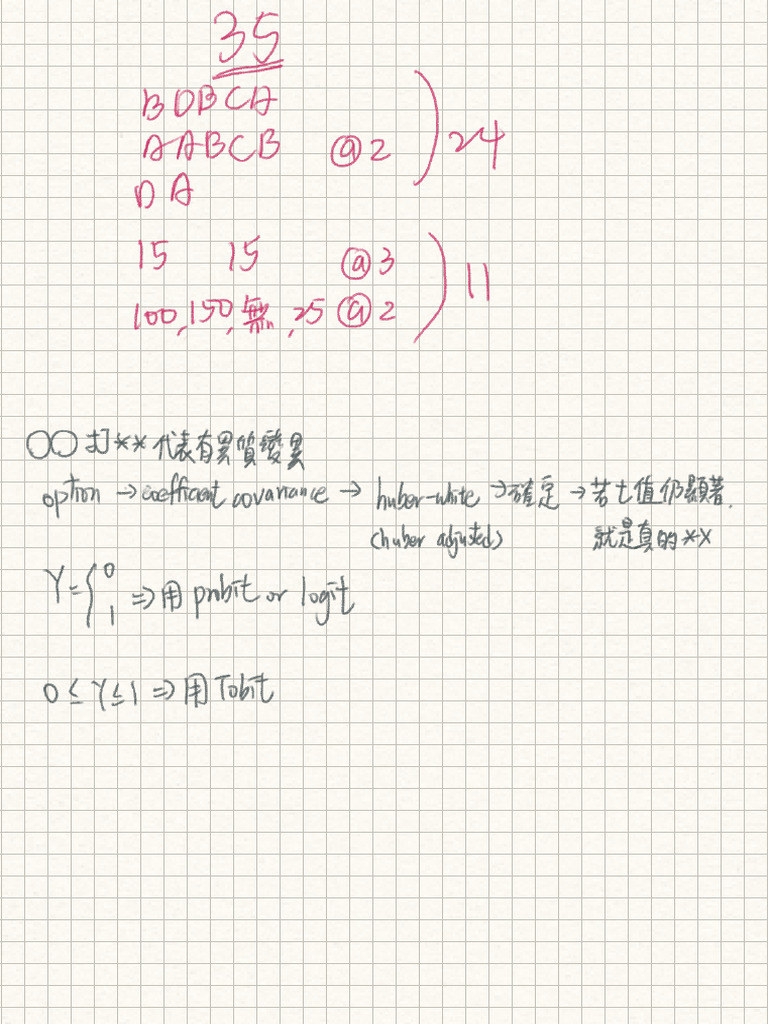 35
BDBCA
AABCB @2 24
DA
15 15 @3
100,150,無,25 @2 11
〇〇打**代表有異質變異
option → coefficient covariance → huber-white → 確定 → 若t值仍顯著,
(huber adjusted) 就是真的**
Y={0 1 ⇒ 用 probit or logit
0 ≤ Y ≤ 1 ⇒ 用 Tobit